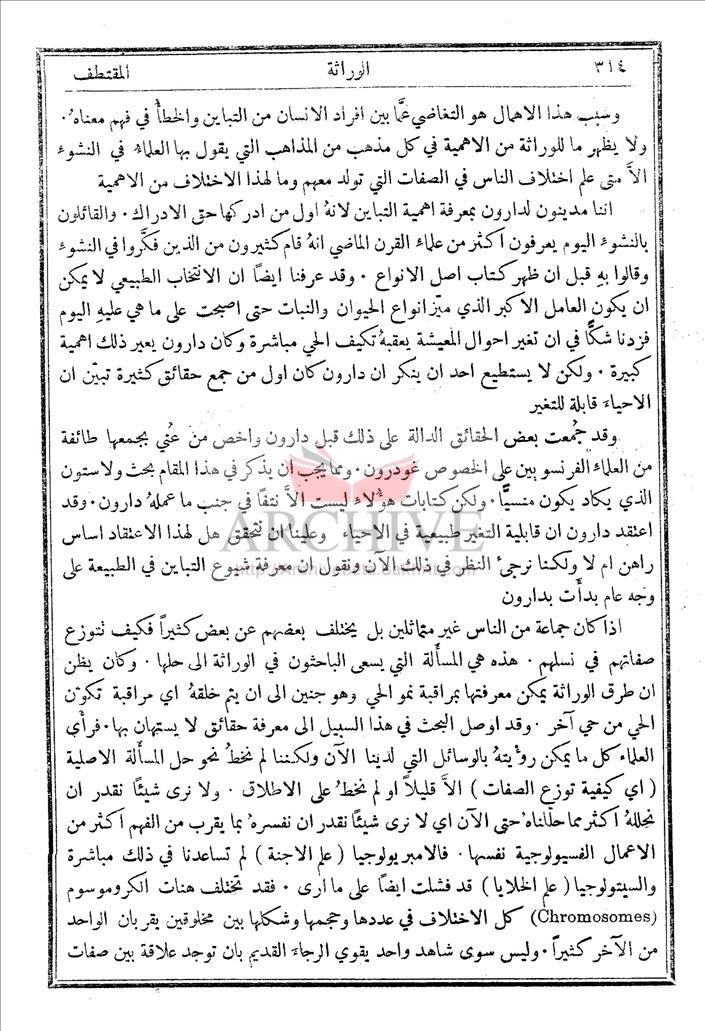 ٣١٤ الوراثة المقتطف
وسبب هذا الاهمال هو التغاضي عمَّا بين افراد الانسان من التباين والخطأُ في فهم معناهُ.
ولا يظهر ما للوراثة من الاهمية في كل مذهب من المذاهب التي يقول بها العلماءُ في النشوءِ
الاَّ متى علم اختلاف الناس في الصفات التي تولد معهم وما لهذا الاختلاف من الاهمية
اننا مدينون لدارون بمعرفة اهمية التباين لانهُ اول من ادركها حق الادراك. والقائلون
بالنشوء اليوم يعرفون اكثر من علماء القرن الماضي انهُ قام كثيرون من الذين فكَّروا في النشوء
وقالوا بهِ قبل ان ظهر كتاب اصل الانواع. وقد عرفنا ايضاً ان الانتخاب الطبيعي لا يمكن
ان يكون العامل الاكبر الذي ميَّز انواع الحيوان والنبات حتى اصبحت على ما هي عليهِ اليوم
فزدنا شكًّا في ان تغير احوال المعيشة يعقبهُ تكيف الحي مباشرة وكان دارون يعير ذلك اهمية
كبيرة. ولكن لا يستطيع احد ان ينكر ان دارون كان اول من جمع حقائق كثيرة تبيّن ان
الاحياء قابلة للتغير
وقد جُمعت بعض الحقائق الدالة على ذلك قبل دارون واخص من عُني بجمعها طائفة
من العلماء الفرنسويين على الخصوص غودرون. ومما يجب ان يذكر في هذا المقام بحث ولاستون
الذي يكاد يكون منسيًّا. ولكن كتابات هؤلاءِ ليست الاَّ نتفاً في جنب ما عملهُ دارون. وقد
اعتقد دارون ان قابلية التغير طبيعية في الاحياء وعلينا ان نتحقق هل لهذا الاعتقاد اساس
راهن ام لا ولكننا نرجئ النظر في ذلك الآن ونقول ان معرفة شيوع التباين في الطبيعة على
وجه عام بدأَت بدارون
اذا كان جماعة من الناس غير متماثلين بل يختلف بعضهم عن بعض كثيراً فكيف تتوزع
صفاتهم في نسلهم. هذه هي المسأَلة التي يسعى الباحثون في الوراثة الى حلها. وكان يظن
ان طرق الوراثة يمكن معرفتها بمراقبة نمو الحي وهو جنين الى ان يتم خلقهُ اي مراقبة تكوّن
الحي من حي آخر. وقد اوصل البحث في هذا السبيل الى معرفة حقائق لا يستهان بها. فرأى
العلماء كل ما يمكن رؤيتهُ بالوسائل التي لدينا الآن ولكننا لم نخطُ نحو حل المسأَلة الاصلية
(اي كيفية توزع الصفات) الاَّ قليلاً او لم نخطُ على الاطلاق. ولا نرى شيئًا نقدر ان
نحللهُ اكثر مما حللناه حتى الآن اي لا نرى شيئًا نقدر ان نفسرهُ بما يقرب من الفهم اكثر من
الاعمال الفسيولوجية نفسها. فالامبريولوجيا (علم الاجنة) لم تساعدنا في ذلك مباشرة
والسيتولوجيا (علم الخلايا) قد فشلت ايضاً على ما ارى. فقد تختلف هنات الكروموسوم
(Chromosomes) كل الاختلاف في عددها وحجمها وشكلها بين مخلوقين يقربان الواحد
من الآخر كثيراً. وليس سوى شاهد واحد يقوي الرجاءَ القديم بان توجد علاقة بين صفات
ARCHIVE